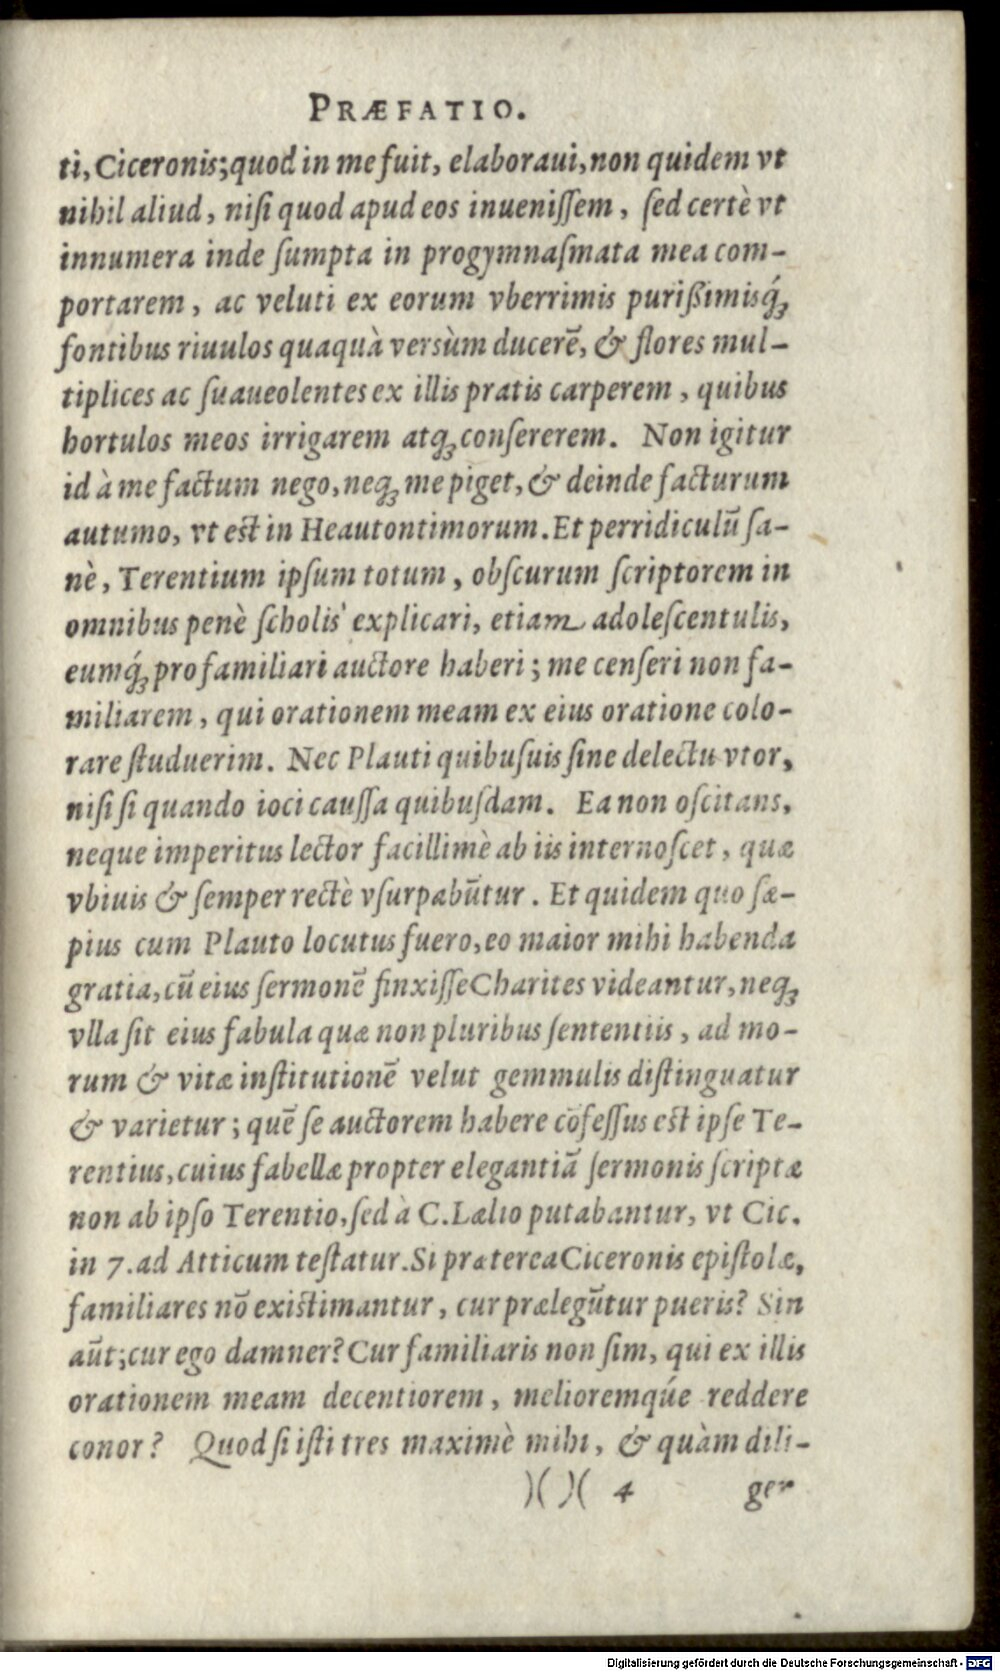 PRÆFATIO.
ti, Ciceronis; quod in me fuit, elaboraui, non quidem vt
nihil aliud, niſi quod apud eos inueniſſem, ſed certè vt
innumera inde ſumpta in progymnaſmata mea com-
portarem, ac veluti ex eorum vberrimis purißimisq́;
fontibus riuulos quaquà versùm ducerē, & flores mul-
tiplices ac ſuaueolentes ex illis pratis carperem, quibus
hortulos meos irrigarem atq; conſererem. Non igitur
id à me factum nego, neq; me piget, & deinde facturum
autumo, vt est in Heautontimorum. Et perridiculū ſa-
nè, Terentium ipſum totum, obſcurum ſcriptorem in
omnibus penè ſcholis explicari, etiam adoleſcentulis,
eumq́; pro familiari auctore haberi; me cenſeri non fa-
miliarem, qui orationem meam ex eius oratione colo-
rare ſtuduerim. Nec Plauti quibuſuis ſine delectu vtor,
niſi ſi quando ioci cauſſa quibuſdam. Ea non oſcitans,
neque imperitus lector facillimè ab iis internoſcet, quæ
vbiuis & ſemper rectè vſurpabūtur. Et quidem quo ſæ-
pius cum Plauto locutus fuero, eo maior mihi habenda
gratia, cū eius ſermonē finxiſſe Charites videantur, neq;
vlla ſit eius fabula quæ non pluribus ſententiis, ad mo-
rum & vitæ inſtitutionē velut gemmulis diſtinguatur
& varietur; quē ſe auctorem habere cōfeſſus est ipſe Te-
rentius, cuius fabellæ propter elegantiā ſermonis ſcriptæ
non ab ipſo Terentio, ſed à C. Lælio putabantur, vt Cic.
in 7. ad Atticum teſtatur. Si præterea Ciceronis epiſtolæ,
familiares nō existimantur, cur prælegūtur pueris? Sin
aūt; cur ego damner? Cur familiaris non ſim, qui ex illis
orationem meam decentiorem, melioremqúe reddere
conor? Quod ſi iſti tres maximè mihi, & quàm dili-
)( )( 4 ger
Digitalisierung gefördert durch die Deutsche Forschungsgemeinschaft - DFG